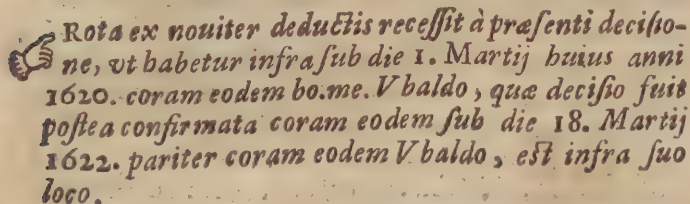 Rota ex nouiter deductis recessit à præsenti decisio-
ne, vt habetur infra sub die 1. Martij huius anni
1620. coram eodem bo.me. Vbaldo, quæ decisio fuit
postea confirmata coram eodem sub die 18. Martij
1622. pariter coram eodem Vbaldo, est infra suo
loco.